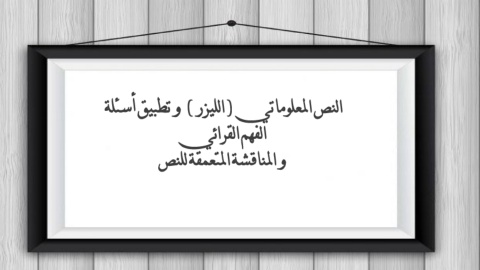 النص المعلوماتي (الليزر) وتطبيق أسئلة
الفهم القرائي
والمناقشة المتعمقة للنص